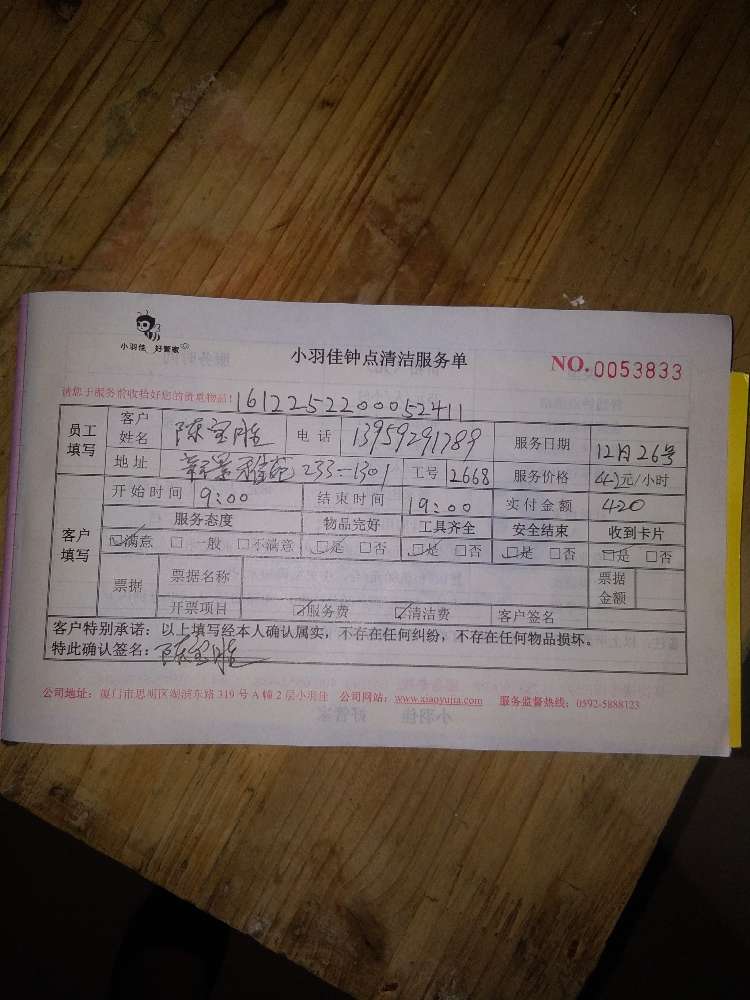 小羽佳 好管家
小羽佳钟点清洁服务单
NO.0053833
请您于服务前收拾好您的贵重物品!
161225220052411
员工填写 客户姓名 陈宝胜 电话 13959291789 服务日期 12月26号
地址 233-1301 工号 2668 服务价格 42元/小时
客户填写 开始时间 9:00 结束时间 19:00 实付金额 420
服务态度 物品完好 工具齐全 安全结束 收到卡片
☑满意 □一般 □不满意 ☑是 □否 ☑是 □否 ☑是 □否 ☑是 □否
票据 票据名称 票据金额
开票项目 ☑服务费 ☑清洁费 客户签名
客户特别承诺：以上填写经本人确认属实，不存在任何纠纷，不存在任何物品损坏。
特此确认签名：陈宝胜
公司地址：厦门市思明区湖滨东路 319 号 A 幢 2 层小羽佳 公司网站：www.xiaoyujia.com 服务监督热线：0592-5888123